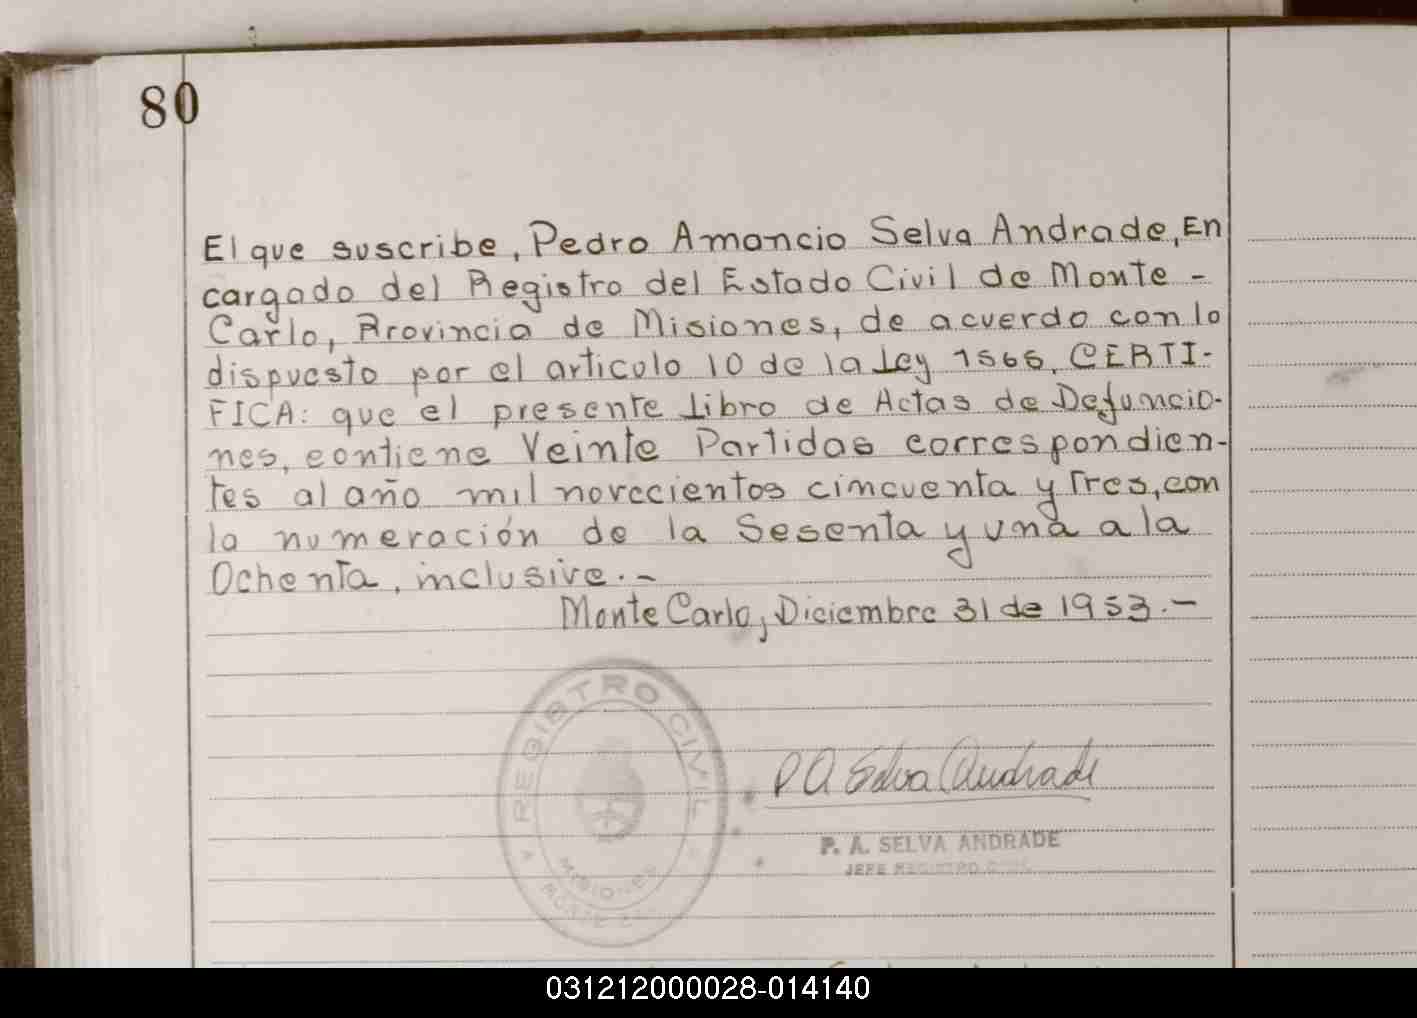 80
El que suscribe, Pedro Amancio Selva Andrade, En
cargado del Registro del Estado Civil de Monte -
Carlo, Provincia de Misiones, de acuerdo con lo
dispuesto por el articulo 10 de la Ley 1565, CERTI-
FICA: que el presente Libro de Actas de Defuncio-
nes, contiene Veinte Partidas correspondien-
tes al año mil novecientos cincuenta y Tres, con
la numeración de la Sesenta y una a la
Ochenta, inclusive.-
Monte Carlo, Diciembre 31 de 1953.-
REGISTRO CIVIL
MISIONES
MONTE
P A Selva Andrade
P. A. SELVA ANDRADE
JEFE REGISTRO CIVIL
031212000028-014140